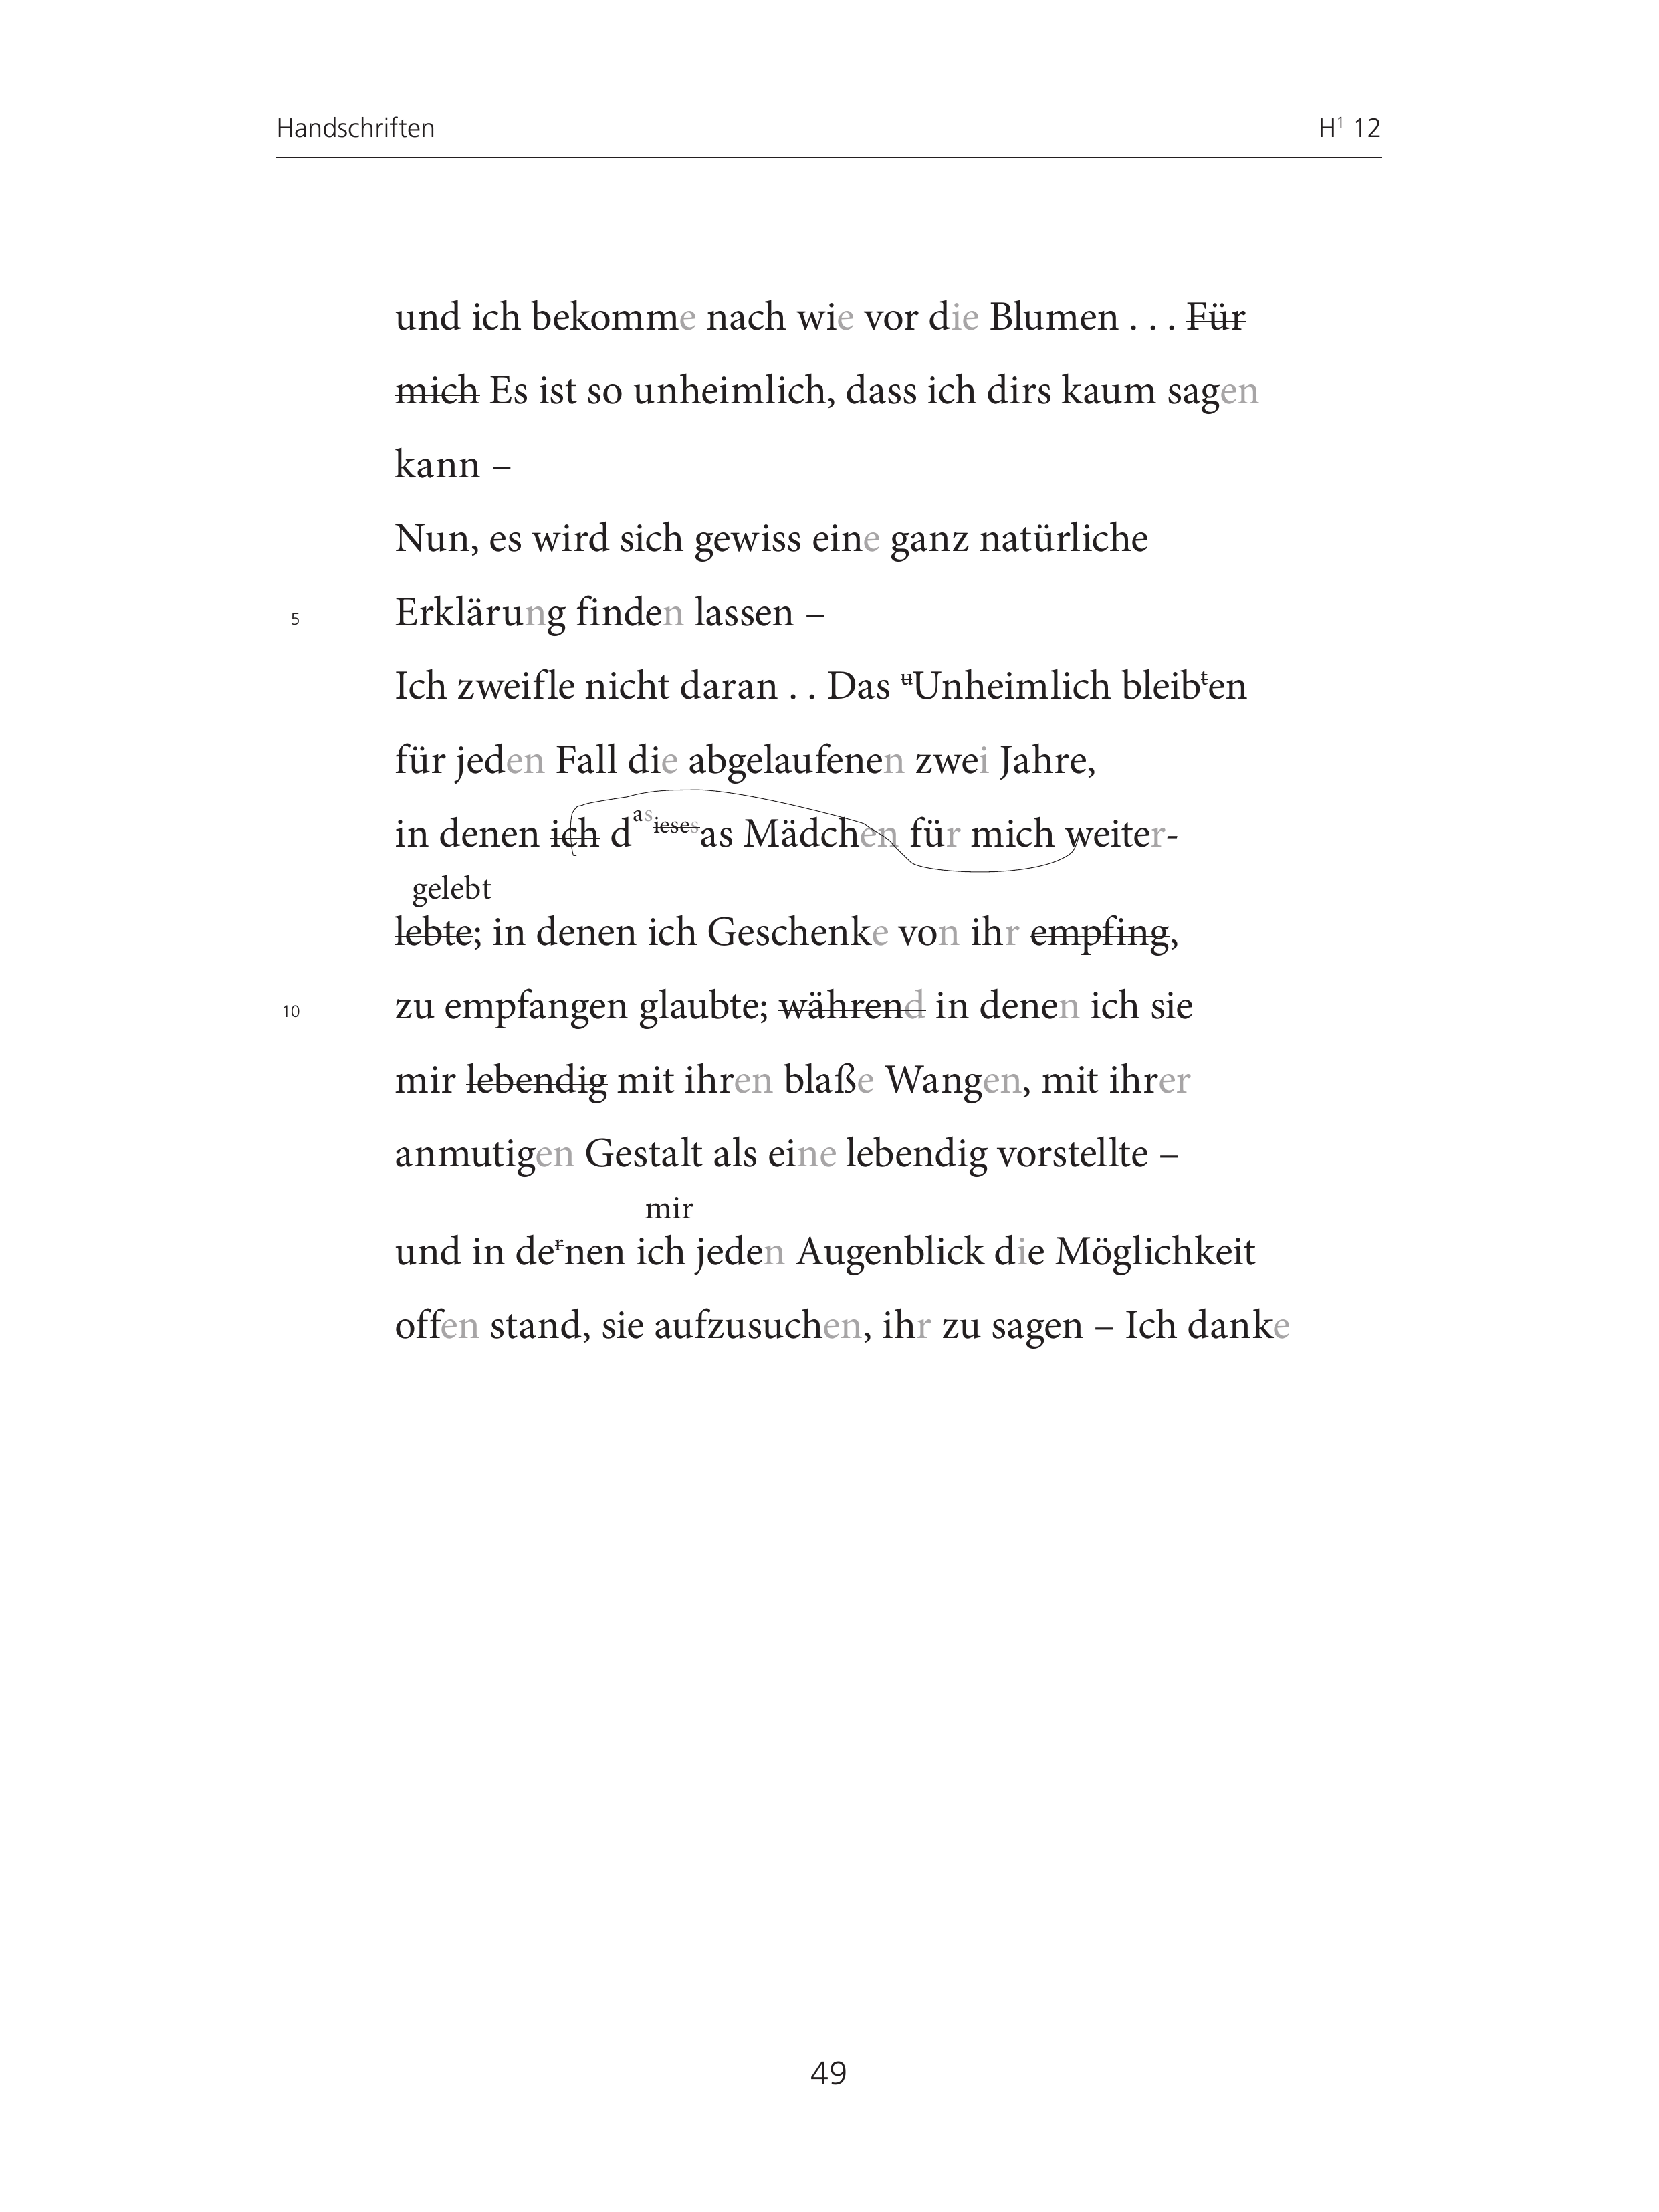 Handschriften H¹ 12
und ich bekomme nach wie vor die Blumen . . . Für
mich Es ist so unheimlich, dass ich dirs kaum sagen
kann –
Nun, es wird sich gewiss eine ganz natürliche
5 Erklärung finden lassen –
Ich zweifle nicht daran . . Das uUnheimlich bleibten
für jeden Fall die abgelaufenen zwei Jahre,
in denen ich dasiesesas Mädchen für mich weiter-
gelebt
lebte; in denen ich Geschenke von ihr empfing,
10 zu empfangen glaubte; während in denen ich sie
mir lebendig mit ihren blaße Wangen, mit ihrer
anmutigen Gestalt als eine lebendig vorstellte –
mir
und in dernen ich jeden Augenblick die Möglichkeit
offen stand, sie aufzusuchen, ihr zu sagen – Ich danke
49